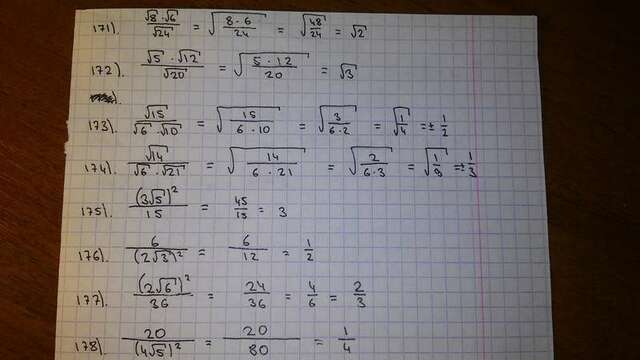 171). √8·√6/√24 = √(8·6/24) = √(48/24) = √2
172). √5·√12/√20 = √(5·12/20) = √3
173). √15/(√6·√10) = √(15/(6·10)) = √(3/(6·2)) = √(1/4) = ± 1/2
174). √14/(√6·√21) = √(14/(6·21)) = √(2/(6·3)) = √(1/9) = ± 1/3
175). (3√5)²/15 = 45/15 = 3
176). 6/(2√3)² = 6/12 = 1/2
177). (2√6)²/36 = 24/36 = 4/6 = 2/3
178). 20/(4√5)² = 20/80 = 1/4